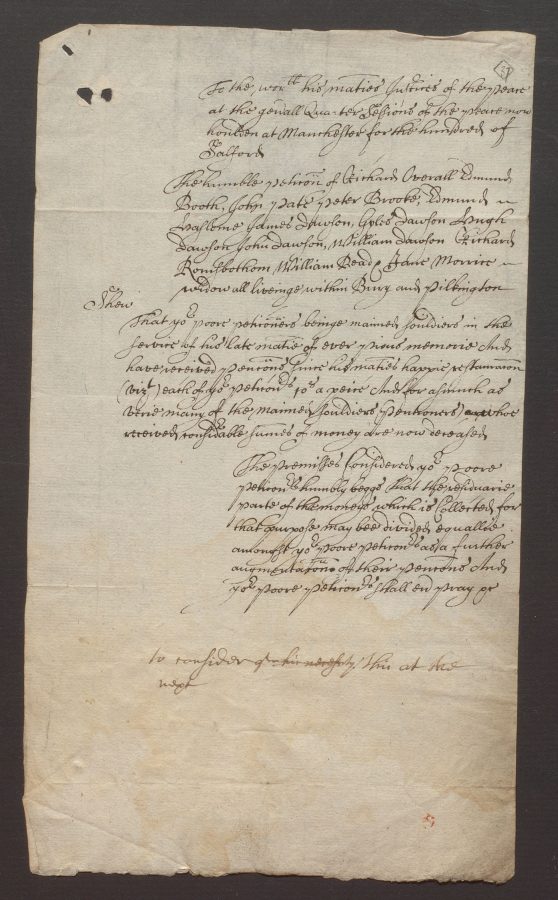 37
To the wor:tt his maties Justices of the peace
at the gen'all Quarter Sessions of the peace now
houlden at Manchester for the hundred of
Salford
The humble peticon of Richard Overall Edmund
Booth, John Pate Peter Brooke, Edmund
James Dawson, Gyles Dawson Hugh
Dawson John Dawson, William Dawson Richard
Romsbothom, William Read Jane Morrice
widdow all liveinge within Bury and Pilkington
Shew
That yor poore peticoners beinge maimed souldiers in the
service of his late matie of ever pious memorie And
have received pencons since his maties happie restauracon
(vizt) each of yor peticonrs 40s a peice And for asmuch as
verie many of the maimed souldiers (pentioners) who
received considable sumes of money are now deceased
The premisses Considered yor poore
peticonrs humbly beggs that the residuarie
parte of the moneys which is Collected for
that purpose may bee divided equallie
amongst yor poore peticonrs as a further
augmentacon of their pencons And
yor poore peticonrs shall ever pray &c
to consider of this at the
next